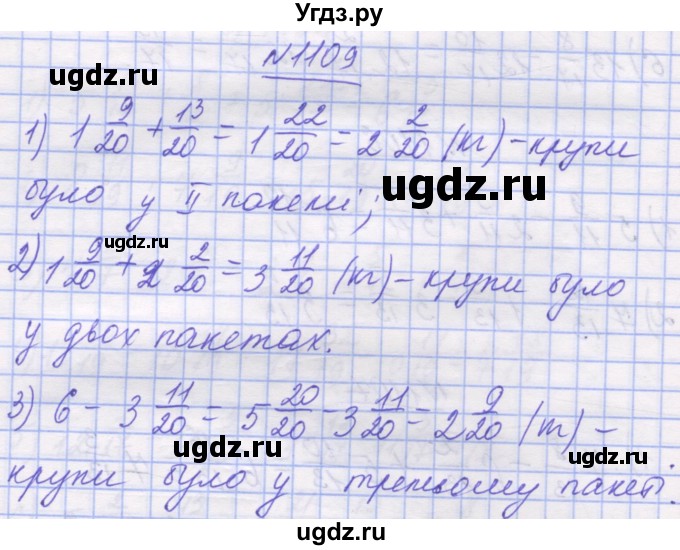 Угдз.ру
N1109
ugdz.ru
1) 1 9/20 + 13/20 = 1 22/20 = 2 2/20 (кг) – крупи
ugdz.ru
було у II пакеті;
ugdz.ru
2) 1 9/20 + 2 2/20 = 3 11/20 (кг) – крупи було
у двох пакетах.
3) 6 – 3 11/20 = 5 20/20 – 3 11/20 = 2 9/20 (т) –
ugdz.ru
ugdz.ru
крупи було у третьому пакеті.
ugdz.ru